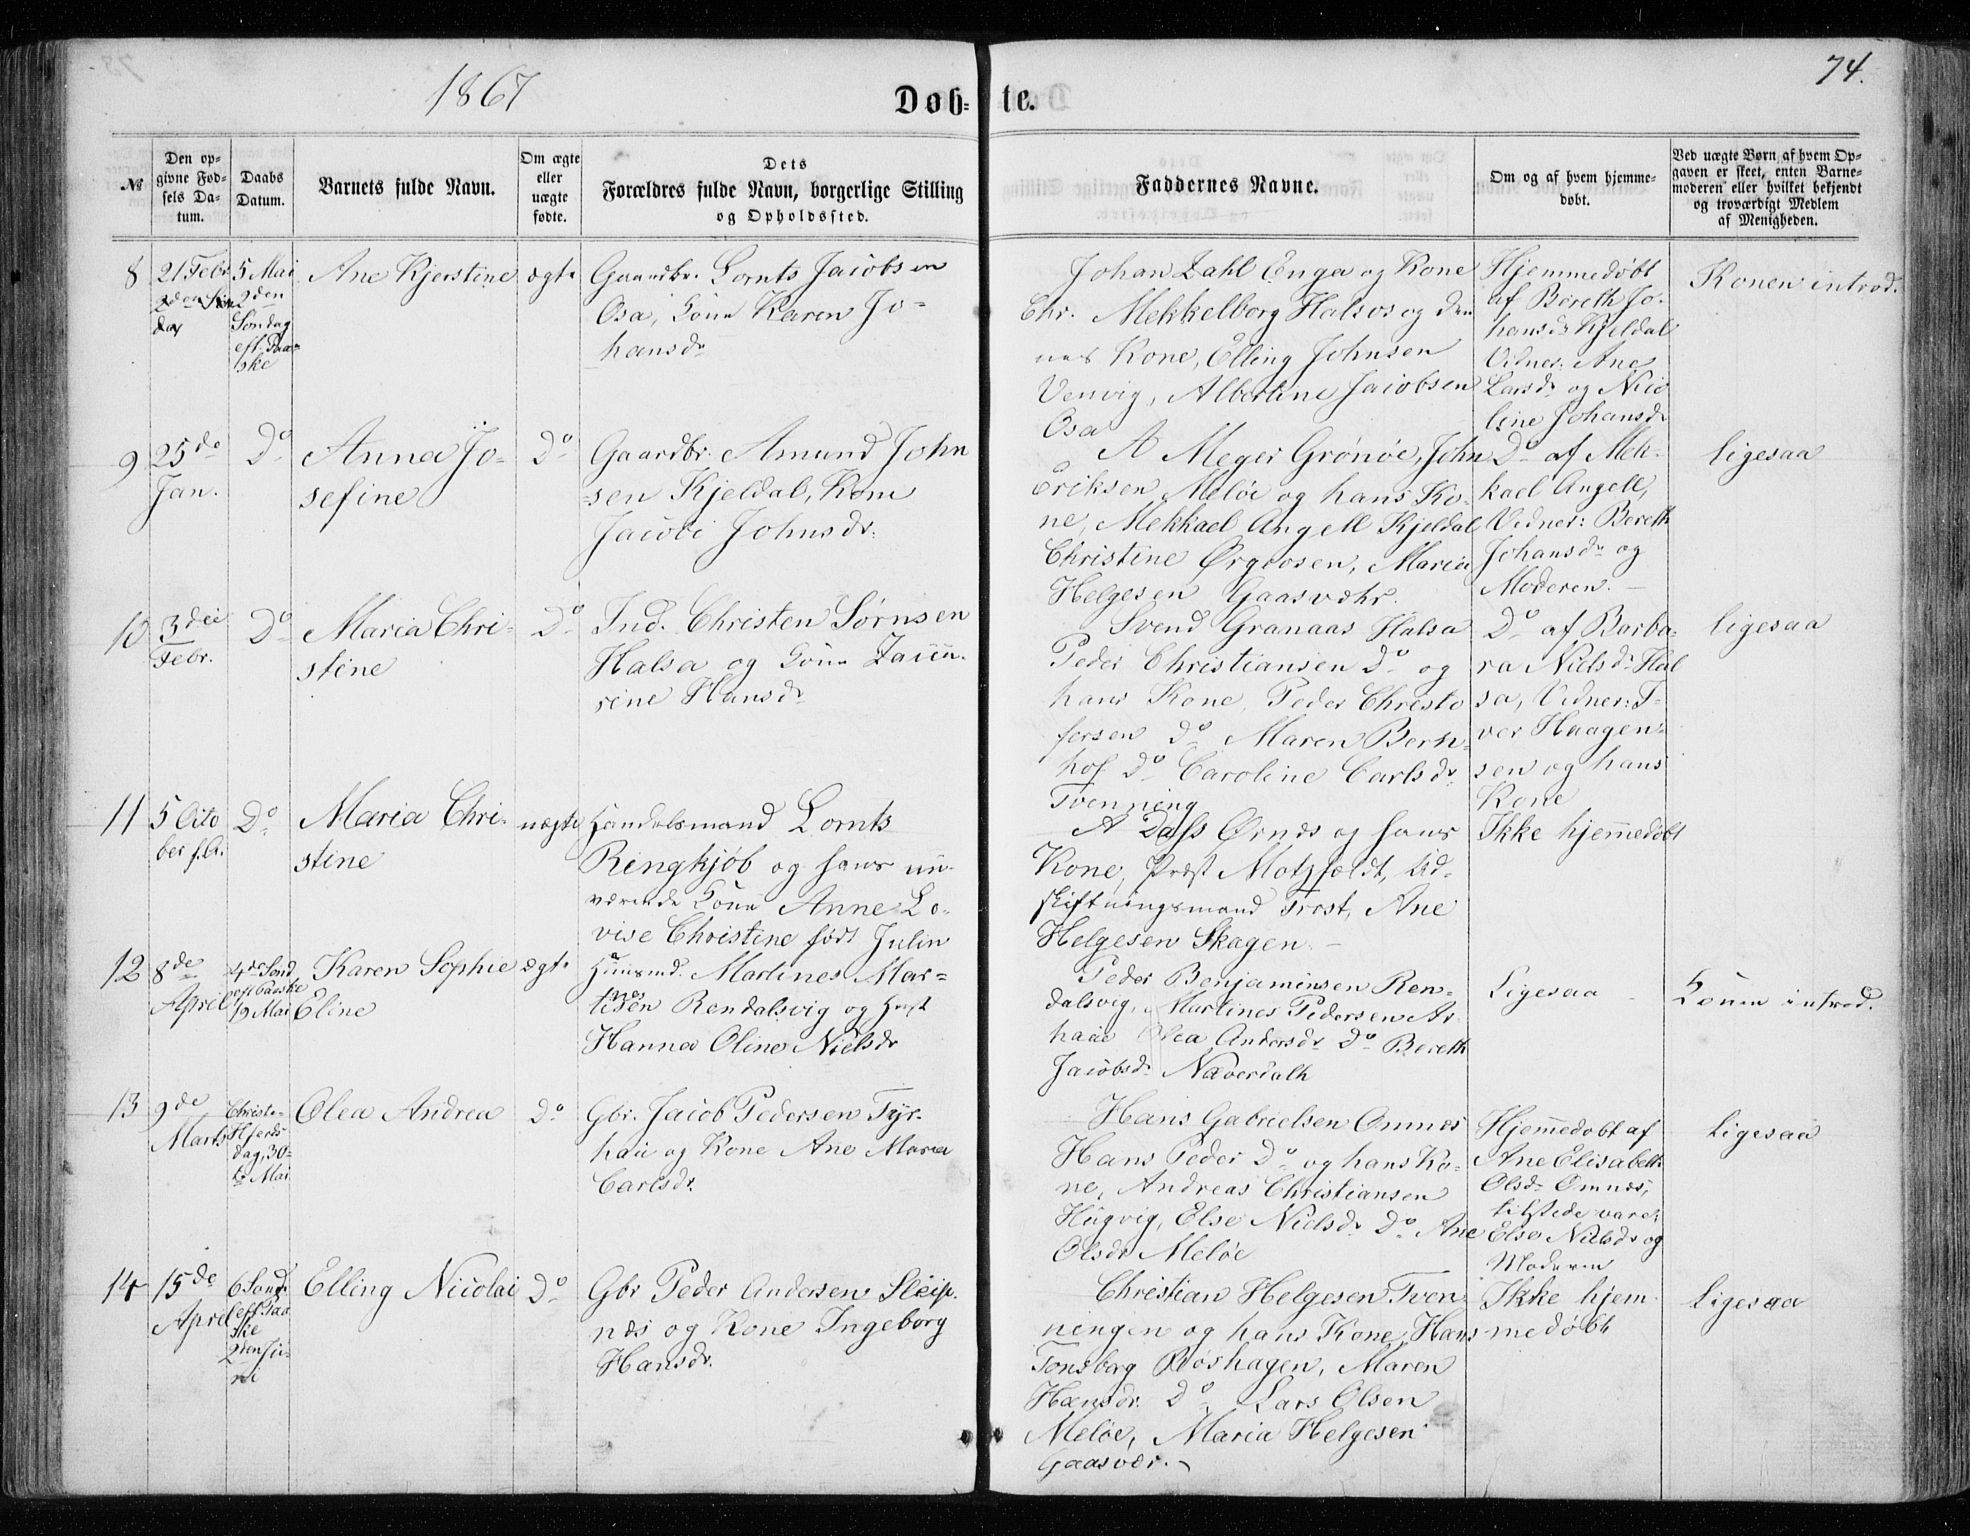 1867
Døb-
te.
74.
№
Den op-
givne Fød-
sels Da-
tum.
Daabs
Datum.
Barnets fulde Navn.
Om ægte
eller
uægte
fødte.
Dets
Forældres fulde Navn, borgerlige Stilling
og Opholdssted.
Faddernes Navne.
Om og af hvem hjemme-
døbt.
Ved uægte Børn af hvem Op-
gaven er skeet, enten Barne-
moderen eller hvilket bekjendt
og troværdigt Medlem
af Menigheden.
8
21 Febr
day
5 Mai
2den
Søndag
eft. Paa-
ske
Ane Kjerstine
ægte
Gaardbr. Lornts Jacobsen
Osa, Kone Karen Jo-
hansdr
Johan Dahl Enga og Kone
Chr. Mekkelborg Halsos og den-
nes Kone, Elling Johnsen
Venvig, Albertine Jacobsen
Osa
Hjemmedøbt
af Bereth Jo-
hansdr Kjeldal
Vidner: Ane
Larsdr og Nico
line Johansdr
Konen introd.
9
25de
Jan.
Do
Anna Jo-
sefine
Do
Gaardbr. Amund John
sen Kjeldal, Kone
Jacobi Johnsdr.
A Meger Grønøe, John
Eriksen Meløe og hans Ko-
ne, Mekkael Angell Kjeldal
Christine Ørgeosen, Maria
Helgesen Gaasværhr.
Do af Mek-
kael Angell,
Vidner: Bereth
Johansdr og
Moderen.
ligesaa
10
3die
Febr.
Do
Maria Chri-
stine
Do
Ind. Christen Sørnsen
Halsa og Kone
rine Hansdr
Svend Granaas Halsa
Peder Christiansen Do og
hans Kone, Peder Christo
fersen Do Maren Bernh-
hof Do Caroline Carlsdr
Tvenning
Do af Barba-
ra Nielsdr Hal
sa, Vidner: I-
ver Haagen-
sen og hans
Kone
ligesaa
11
5 Octo
ber f.A.
Do
Maria Chri-
stine
uægte
Handelsmand Lornts
Ringkjøb og hans nu-
værende Kone Anne Lo-
vise Christine født Julin
A Dass Ørnes og hans
Kone, Præst Motzfeldt, Ud-
skiftningsmand Trost, Ane
Helgesen Skagen. –
Ikke hjemmedøbt
12
8de
April
4de Sønd
eft Paaske
19 Mai
Karen Sophie
Eline
ægte
Huusmd. Martines Mar-
tinesen Rendalsvig og Hust
Hanna Oline Nielsdr
Peder Benjaminsen Ren-
dalsvig, Martines Pedersen Ar
haue Olea Andersdr Do Bereth
Jacobsdr Næverdalh
Ligesaa
Konen introd.
13
9de
Marts
Christi
Hfærds
dag, 30-
te Mai
Olea Andrea
Do
Gbr. Jacob Pedersen Tyr-
haue og Kone Ane Maria
Carlsdr.
Hans Gabrielsen Omnes
Hans Peder Do og hans Ko-
ne, Andreas Christiansen
Hugvig, Else Nielsdr Do Ane
Olsdr Meløe
Hjemmedøbt af
Ane Elisabeth
Olsdr Omnes,
tilstede vare:
Else Nielsdr og
Moderen
ligesaa
14
15de
April
6 Sønd.
eft. Paa
ske
2den Ju-
ni
Elling Nicolai
Do
Gbr Peder Andersen Sleip-
næs og Kone Ingeborg
Hansdr.
Christian Helgesen Tven
ningen og hans Kone, Hans
Tonsberg Røshagen, Maren
Hansdr. Do Lars Olsen
Meløe, Maria Helgesen
Gaasvær.
Ikke hjem
medøbt
ligesaa